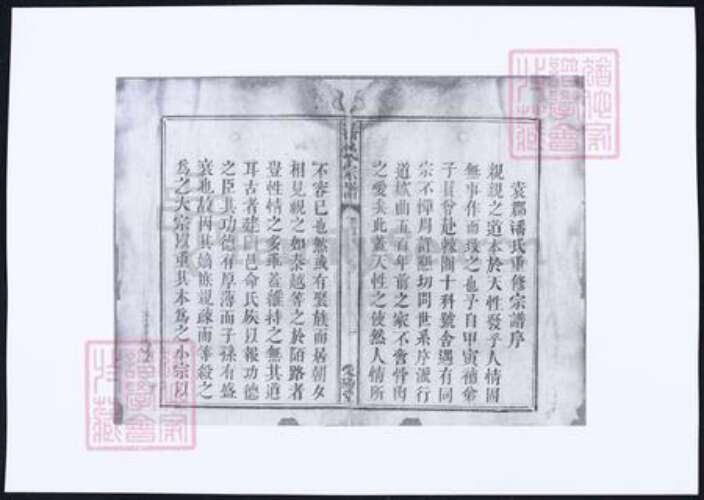 袁郡潘氏重修宗譜序
親親之道本於天性發乎人情固
無事作而致之也予自甲寅補弟
子員曾赴棘闈十科號舍遇有同
宗不憚周詳懇切問世系序派行
道款曲五百年前之家不啻骨肉
之愛夫此蓋天性之使然人情所
不容已也然或有聚族而居朝夕
相見視之如秦越等之於陌路者
豈性情之多乖蓋維持之無其道
耳古者建邑命氏族以報功德
之臣其功德有厚薄而子孫有盛
衰也故因其嫡族親疎而等殺之
為之大宗以重其本為之小宗以
宗譜